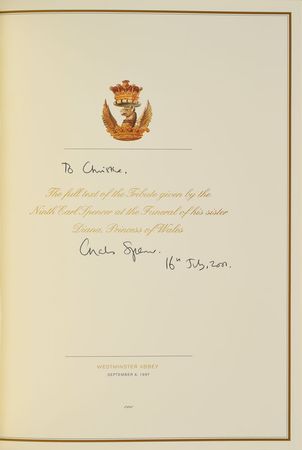 To Christie,
The full text of the Tribute given by the
Ninth Earl Spencer at the Funeral of his sister
Diana, Princess of Wales
Charles Spencer.
16th July, 2001.
WESTMINSTER ABBEY
SEPTEMBER 6, 1997